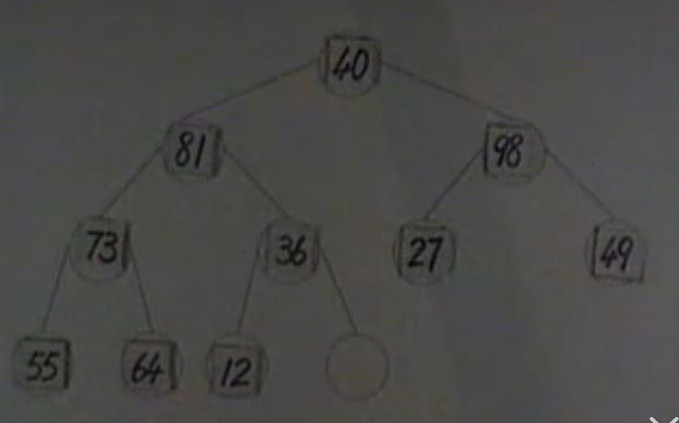 40
81 98
73 36 27 49
55 64 12